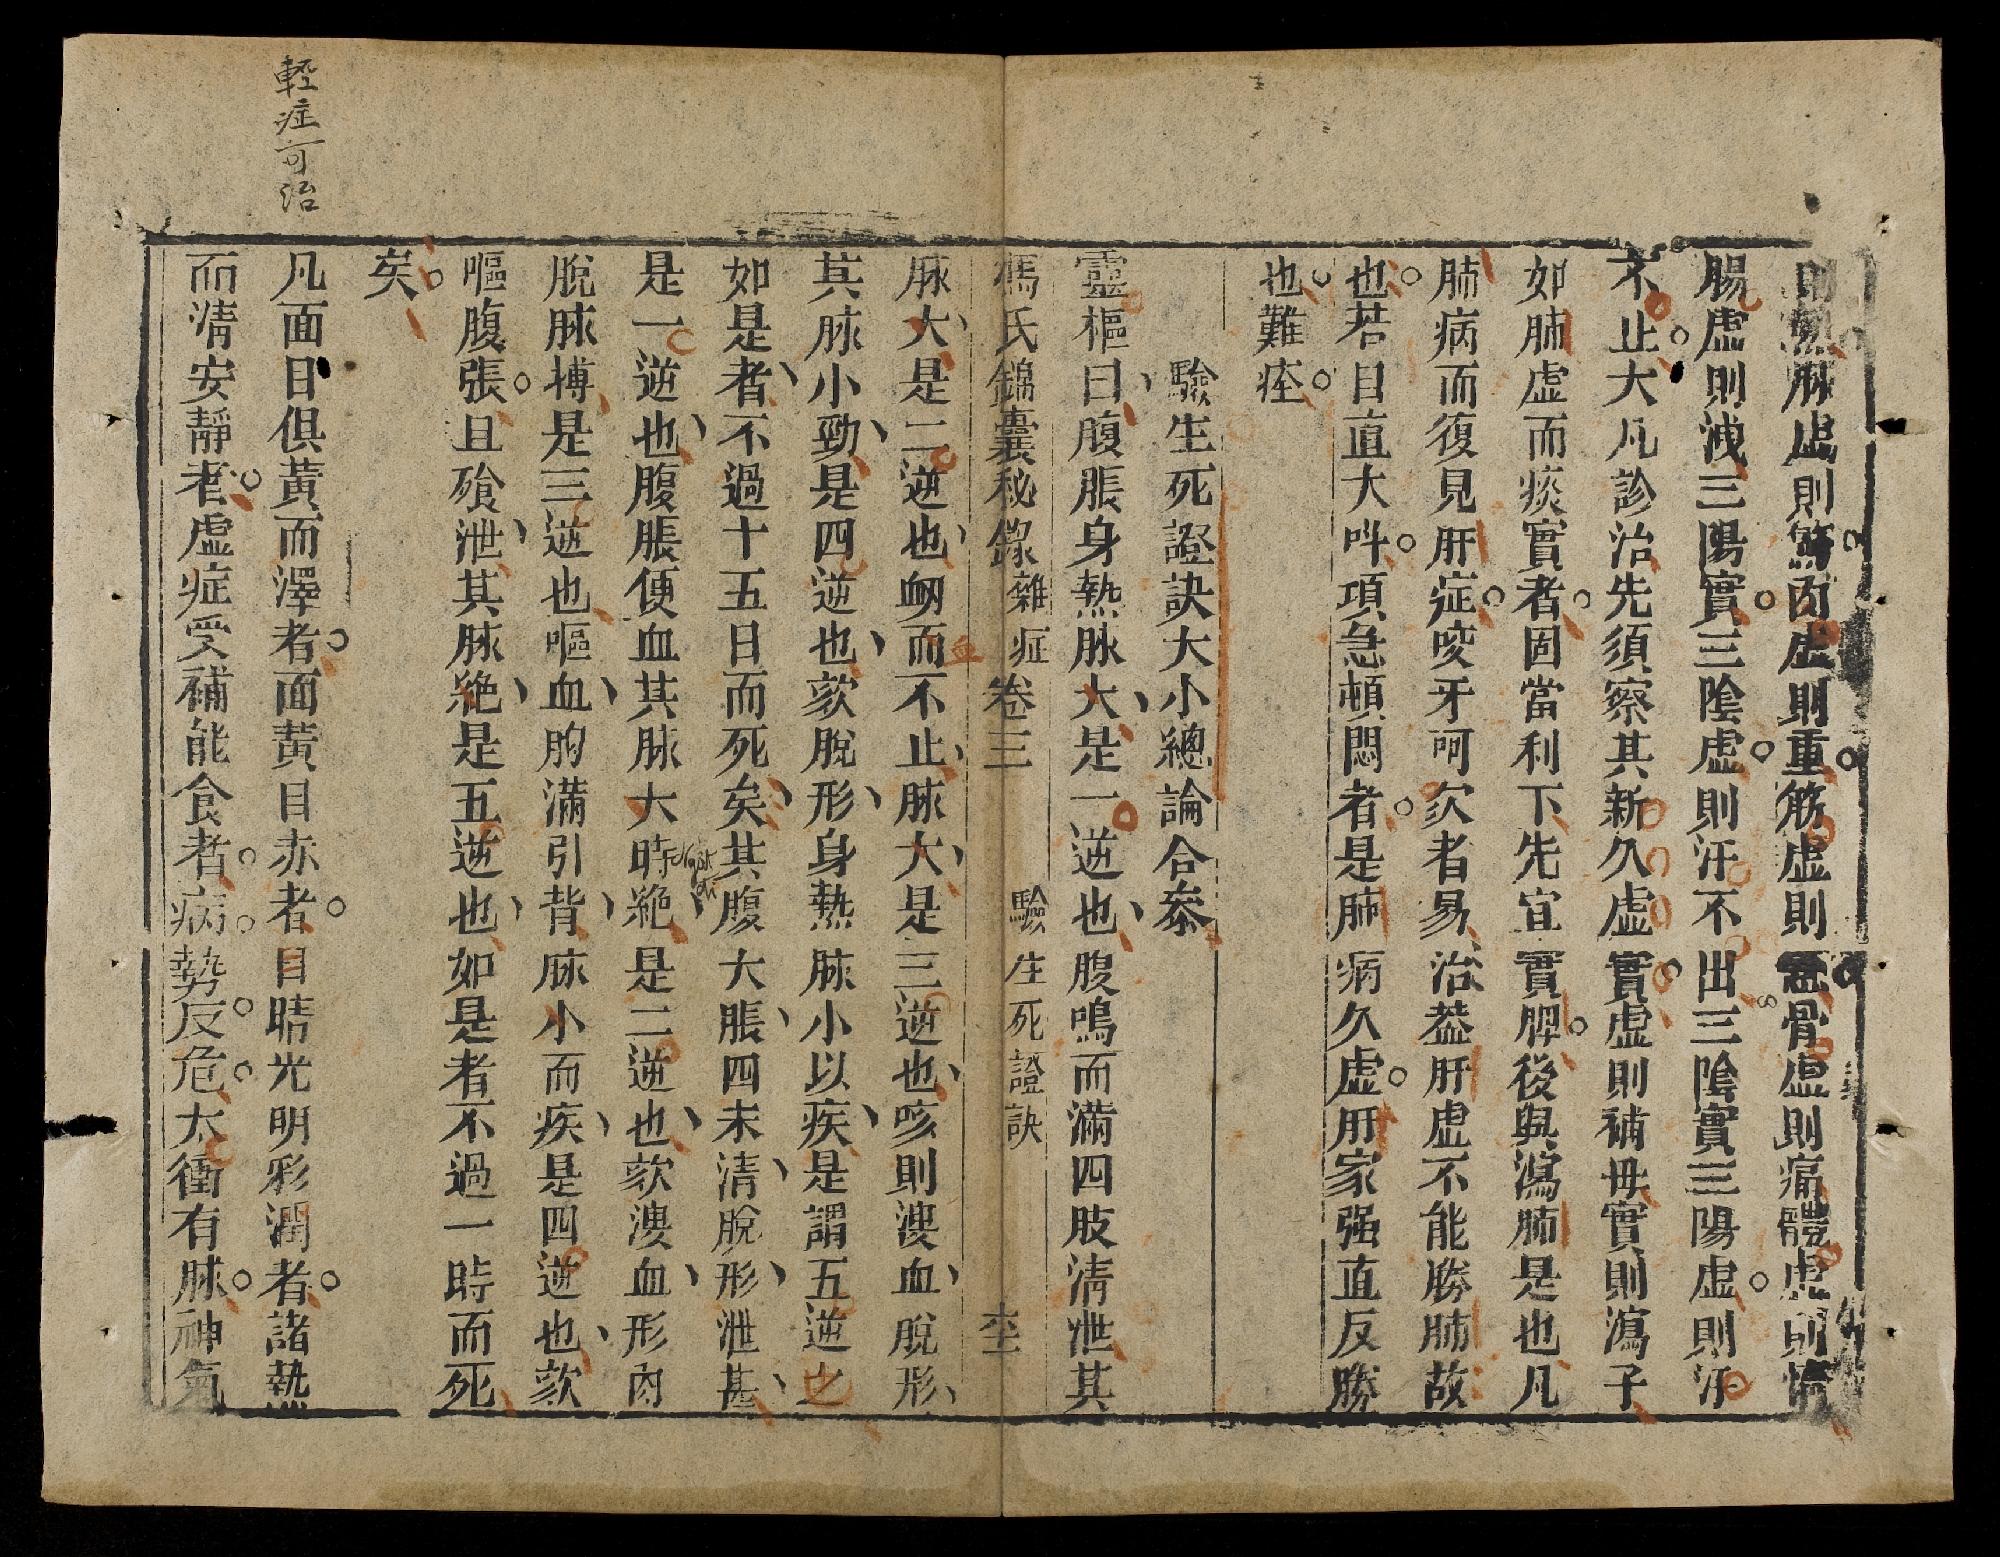 則熱脉虛則驚肉虛則重筋虛則急骨虛則痛體虛則惰
腸虛則洩三陽實三陰虛則汗不出三陰實三陽虛則汗
不止大凡診治先須察其新久虛實虛則補母實則瀉子
如肺虛而痰實者固當利下先宜實脾後與瀉肺是也凡
肺病而復見肝症咬牙呵欠者易治葢肝虛不能勝肺故
也若目直大呌項急頓悶者是肺病久虛肝家强直反勝
也難痊
驗生死證訣大小總論合叅
靈樞曰腹脹身熱脉大是一逆也腹鳴而滿四肢淸泄其
馮氏錦囊秘錄 雜症 卷三 驗生死證訣
脉大是二逆也衂而不止脉大是三逆也咳則溲血脫形
其脉小勁是四逆也欬脫形身熱脉小以疾是謂五逆之
如是者不過十五日而死矣其腹大脹四末淸脫形泄甚
是一逆也腹脹便血其脉大時絶是二逆也欬溲血形肉
脫脉搏是三逆也嘔血胸滿引背脉小而疾是四逆也欬
嘔腹張且飱泄其脉絶是五逆也如是者不過一時而死
矣
輕症可治
凡面目俱黃而澤者面黃目赤者目睛光明彩潤者諸熱
而淸安靜者虛症受補能食者病勢反危太衝有脉神氣
血
Ngắt đi